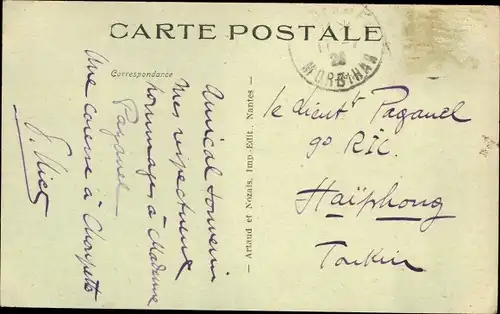 CARTE POSTALE
Correspondance
MORBIHAN
Amical souvenir
Mes respectueux
hommages à Madame
Paganel
Une caresse à
— Artaud et Nozais, Imp.-Édit., Nantes —
le Lieut.t Paganel
9o RIC.
Haïphong
Tonkin